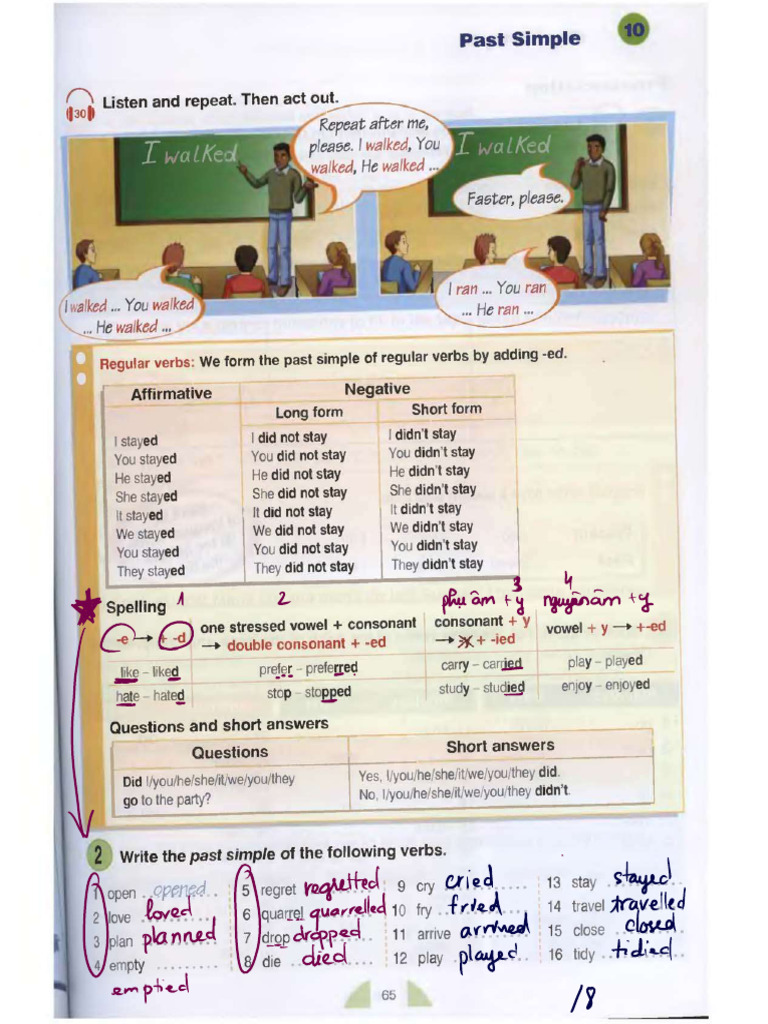 Past Simple 10
30 Listen and repeat. Then act out.
I walked
Repeat after me,
please. I walked, You
walked, He walked ...
I walked
Faster, please.
I walked ... You walked
... He walked ...
I ran ... You ran
... He ran ...
Regular verbs: We form the past simple of regular verbs by adding -ed.
Affirmative Negative
Long form Short form
I stayed I did not stay I didn't stay
You stayed You did not stay You didn't stay
He stayed He did not stay He didn't stay
She stayed She did not stay She didn't stay
It stayed It did not stay It didn't stay
We stayed We did not stay We didn't stay
You stayed You did not stay You didn't stay
They stayed They did not stay They didn't stay
Spelling 1 2 phụ âm + y 3 nguyên âm + y 4
-e → + -d one stressed vowel + consonant → double consonant + -ed consonant + y → + -ied vowel + y → + -ed
like – liked prefer – preferred carry – carried play – played
hate – hated stop – stopped study – studied enjoy – enjoyed
Questions and short answers
Questions Short answers
Did I/you/he/she/it/we/you/they go to the party? Yes, I/you/he/she/it/we/you/they did.
No, I/you/he/she/it/we/you/they didn't.
2 Write the past simple of the following verbs.
1 open opened 5 regret regretted 9 cry cried 13 stay stayed
2 love loved 6 quarrel quarrelled 10 fry fried 14 travel travelled
3 plan planned 7 drop dropped 11 arrive arrived 15 close closed
4 empty 8 die died 12 play played 16 tidy tidied
emptied
65
/8